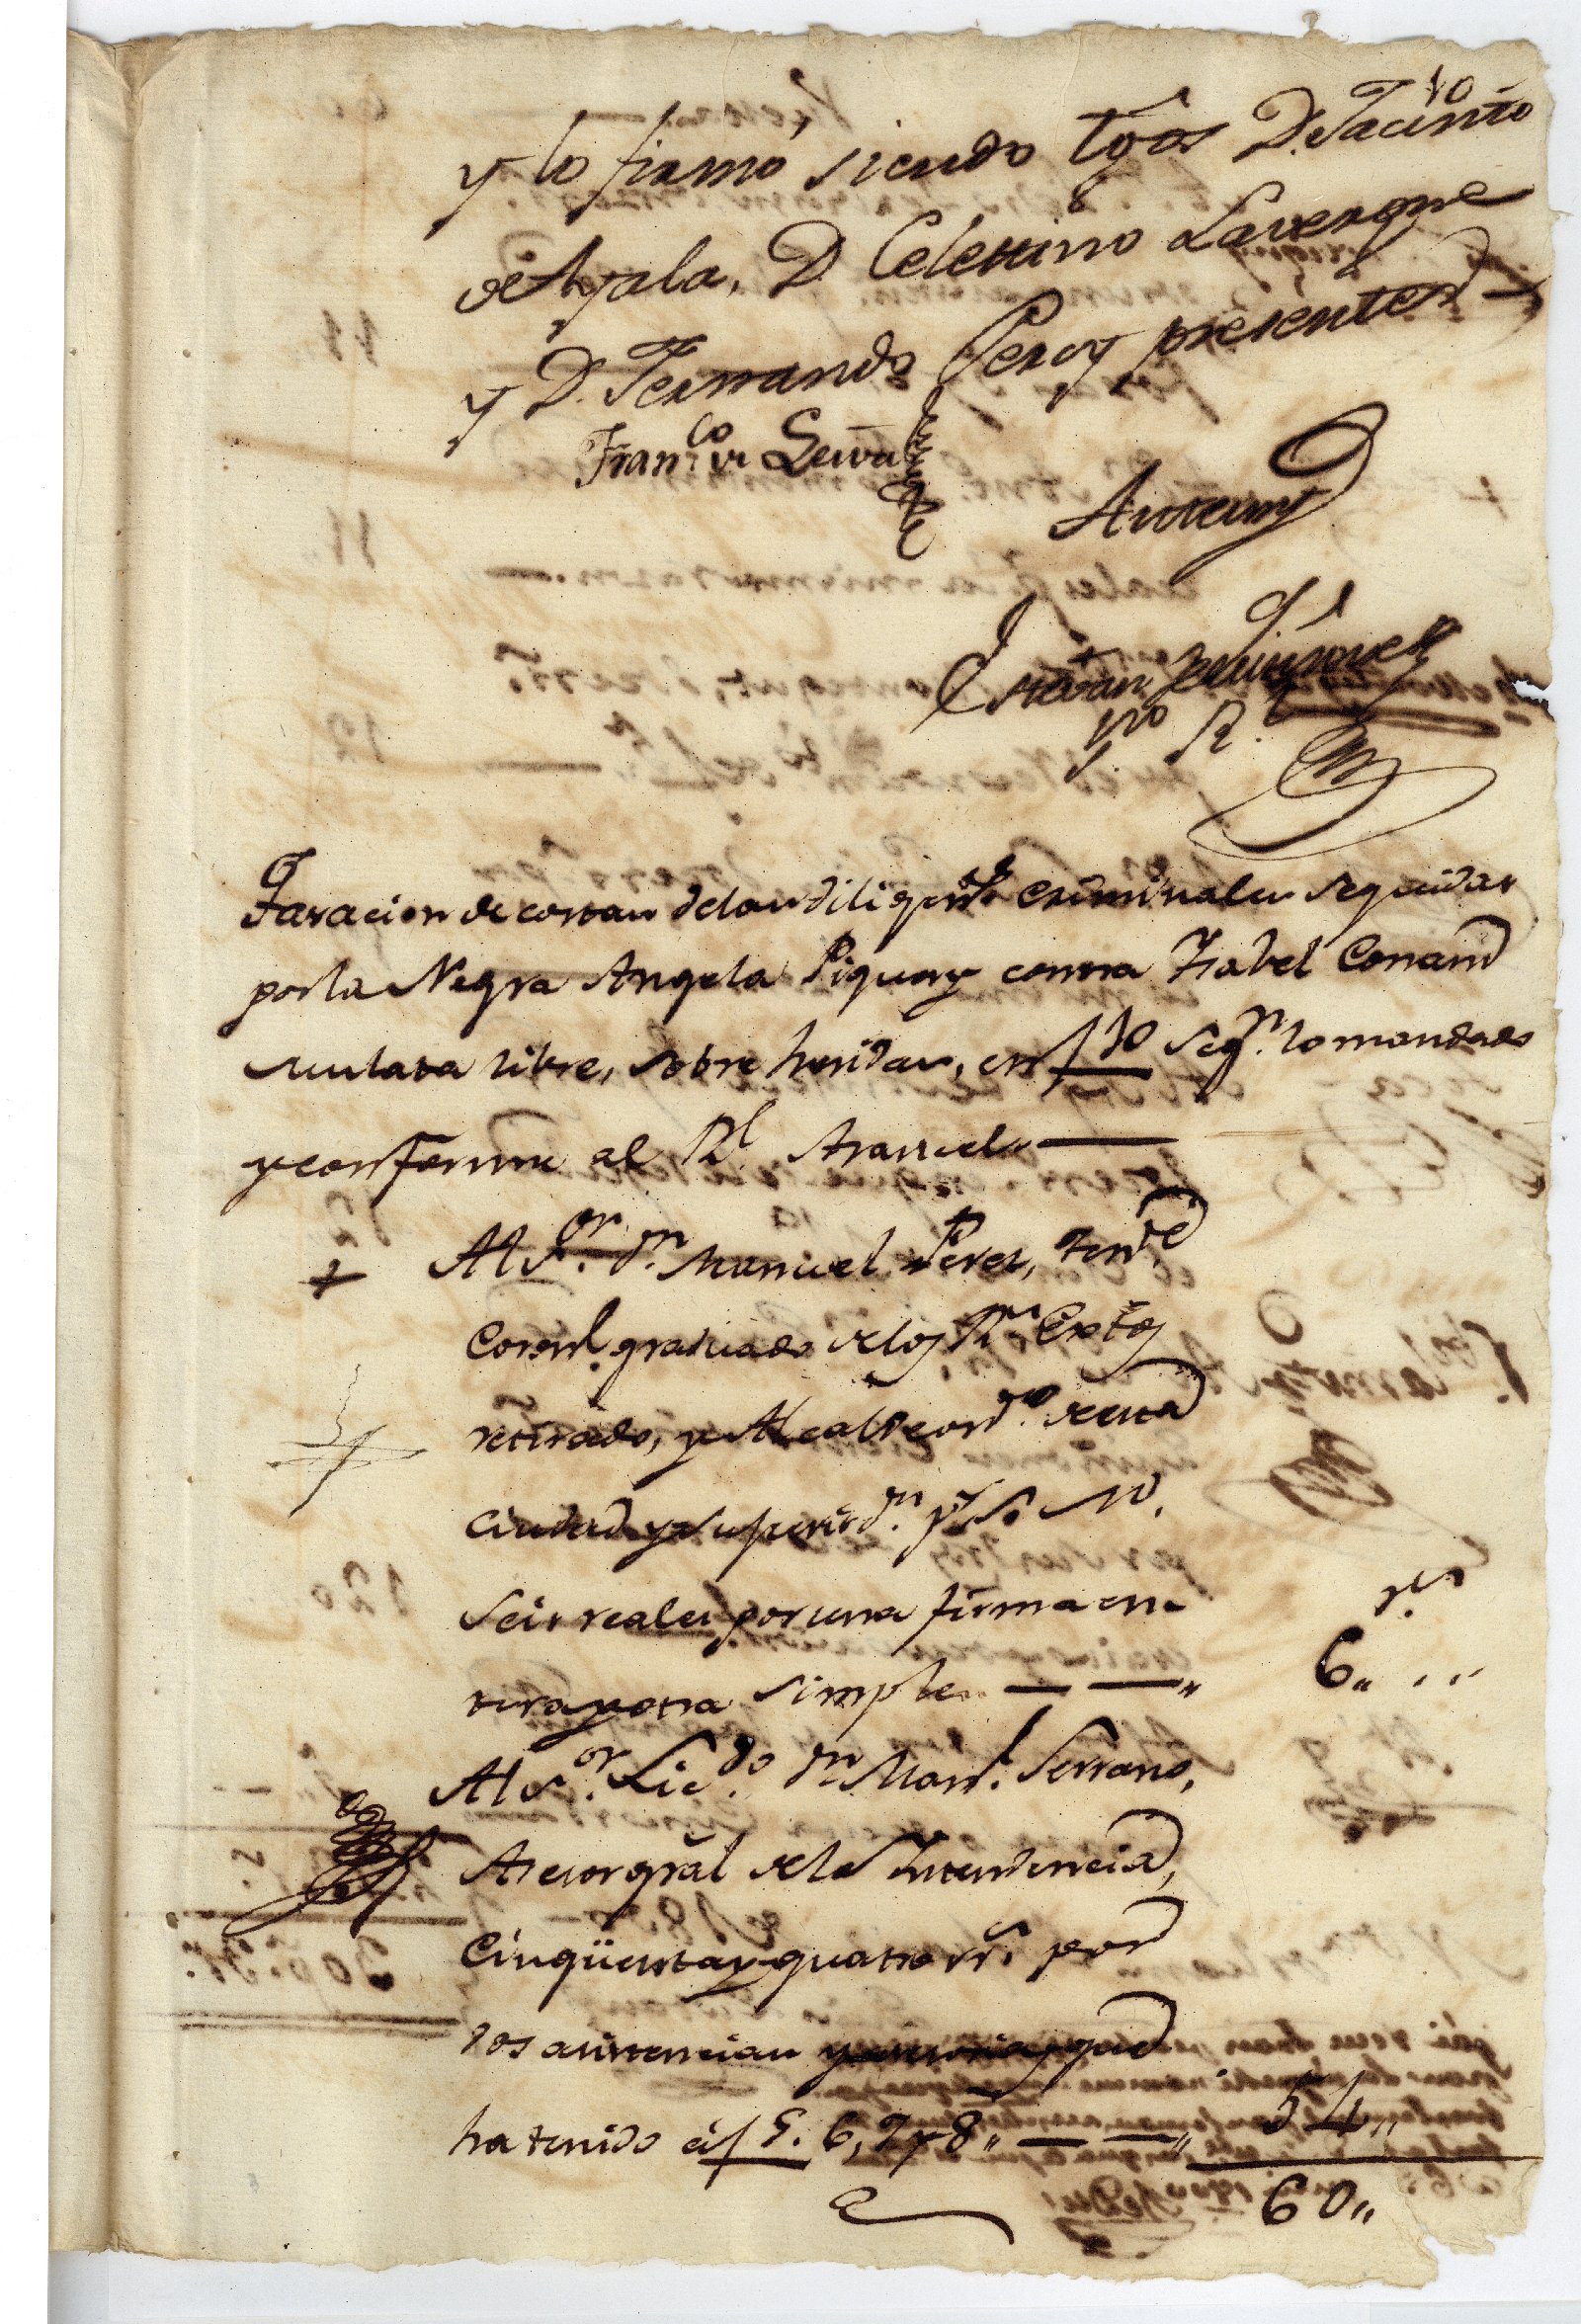 10
y lo firmó siendo tgõs D. Jacinto
de Ayala, D. Celestino Lavergne
y D. Fernando Percy presentes
Fran.co de Leiva
Antemy
Estevan de Quiñones
Sno R.
Tasacion de costas delas diligens. Criminales seguidas
por la Negra Angela Piquery contra Isabel Conand
mulata libre, sobre heridas, en f 10 seg.n lo mandado
y conforme al Rl. Arancel
Al S.or D.n Manuel Perez, tente
Coronl. graduado delos Rs. Extos
retirado, y Alcalde ord.o de esta
ciudad y su jurisd.n pr S. M.
seis reales por una firma en-
tera y otra simple
rs.
6,,
Al S.or Lic.do D.n Manl. Serrano,
Asesor grãl dela Intendencia,
Cinqüenta y quatro rrs. por
dos asistencias qe
ha tenido á f 5. 6, 7 y 8,,
54,,
60,,